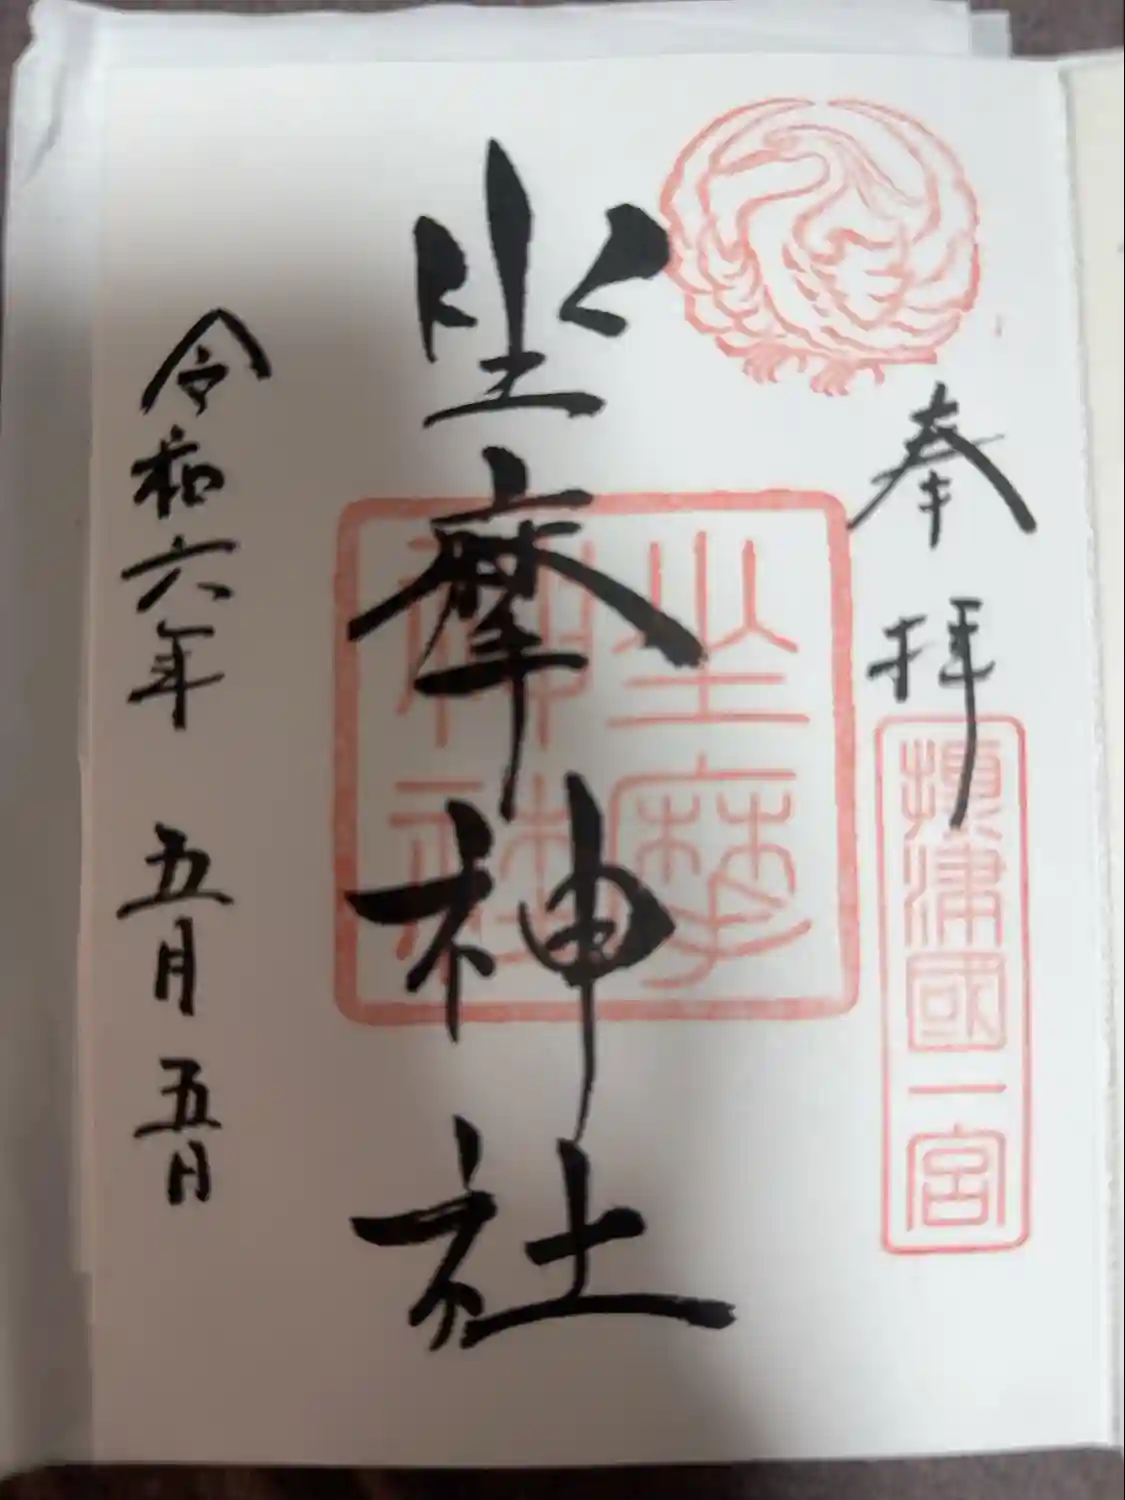 奉拝
摂津國一宮
坐摩神社
坐摩
神社
令和六年 五月 五日